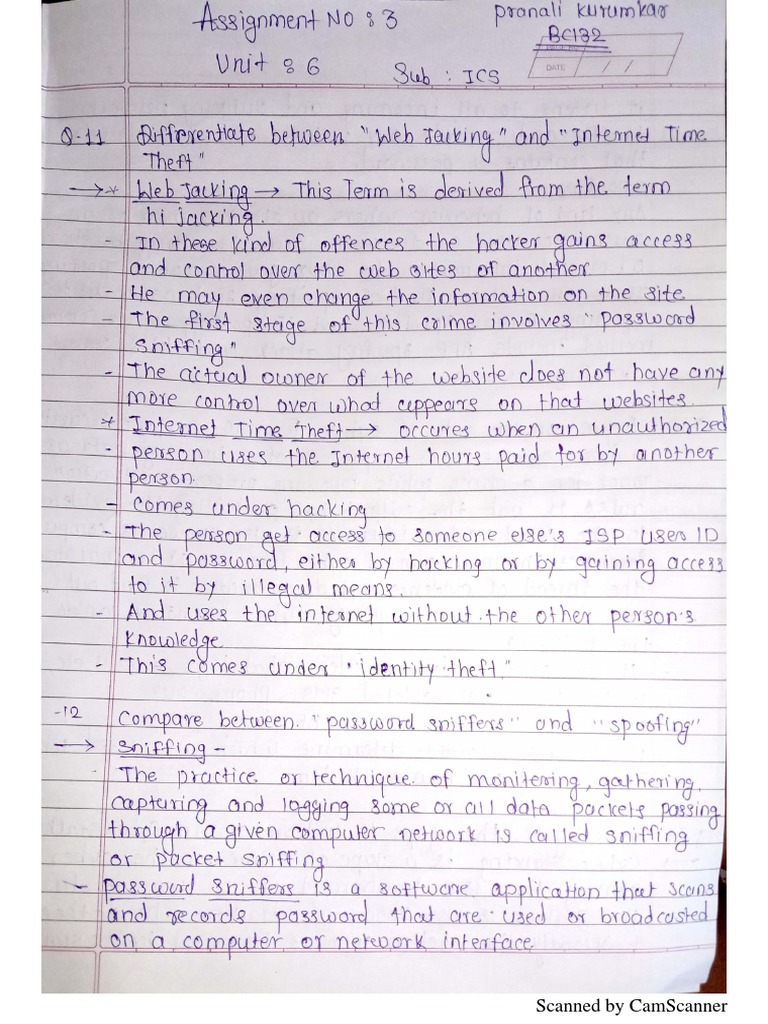 Assignment No : 3
Pranali Kurumkar
BC132
Unit : 6
Sub : ICS
DATE / /
Q-11 Differentiate between "Web Jacking" and "Internet Time
Theft"
→ * Web Jacking → This Term is derived from the term
hi jacking.
- In these kind of offences the hacker gains access
and control over the web sites of another
- He may even change the information on the site
- The first stage of this crime involves "password
sniffing"
- The actual owner of the website does not have any
more control over what appears on that websites.
* Internet Time Theft → occures when an unauthorized
- person uses the Internet hours paid for by another
person.
- comes under hacking
- The person get access to someone else's ISP user ID
and password, either by hacking or by gaining access
to it by illegal means.
- And uses the internet without the other person's
knowledge
- This comes under "identity theft"
-12 Compare between "password sniffers" and "spoofing"
→ Sniffing -
The practice or technique of monitering, gathering,
capturing and logging some or all data packets passing
through a given computer network is called sniffing
or packet sniffing
- Password Sniffers is a software application that scans
and records password that are used or broadcasted
on a computer or network interface
Scanned by CamScanner